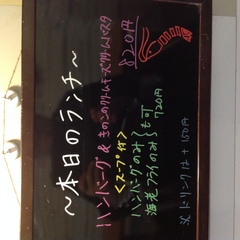 〜本日のランチ〜
ハンバーグ&きのこのクリームチーズクリームパスタ
820円
<スープ付>
ハンバーグのみ
海老フライのみ
も可
720円
※ドリンクは+150円